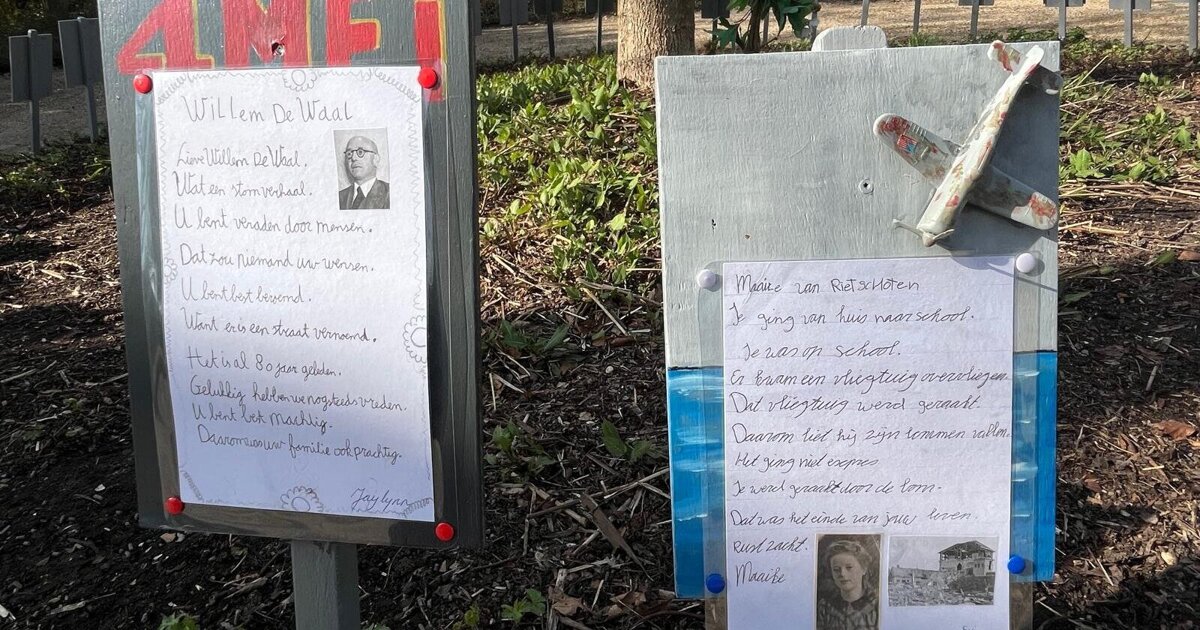 4 MEI
Willem De Waal
Lieve Willem De Waal.
Wat een stom verhaal.
U bent veraden door mensen.
Dat zou niemand uw wensen.
U bent best beroemd.
Want er is een straat vernoemd.
Het is al 80 jaar geleden.
Gelukkig hebben we nog steeds vreden.
U bent best machtig.
Daarom is uw familie ook prachtig.
Jaylynn
Maaike van Rietschoten
Je ging van huis naar school.
Je was op school.
Er kwam een vliegtuig overvliegen.
Dat vliegtuig werd geraakt.
Daarom liet hij zijn bommen vallen.
Het ging niet expres
Je werd geraakt door de bom.
Dat was het einde van jouw leven.
Rust zacht.
Maaike